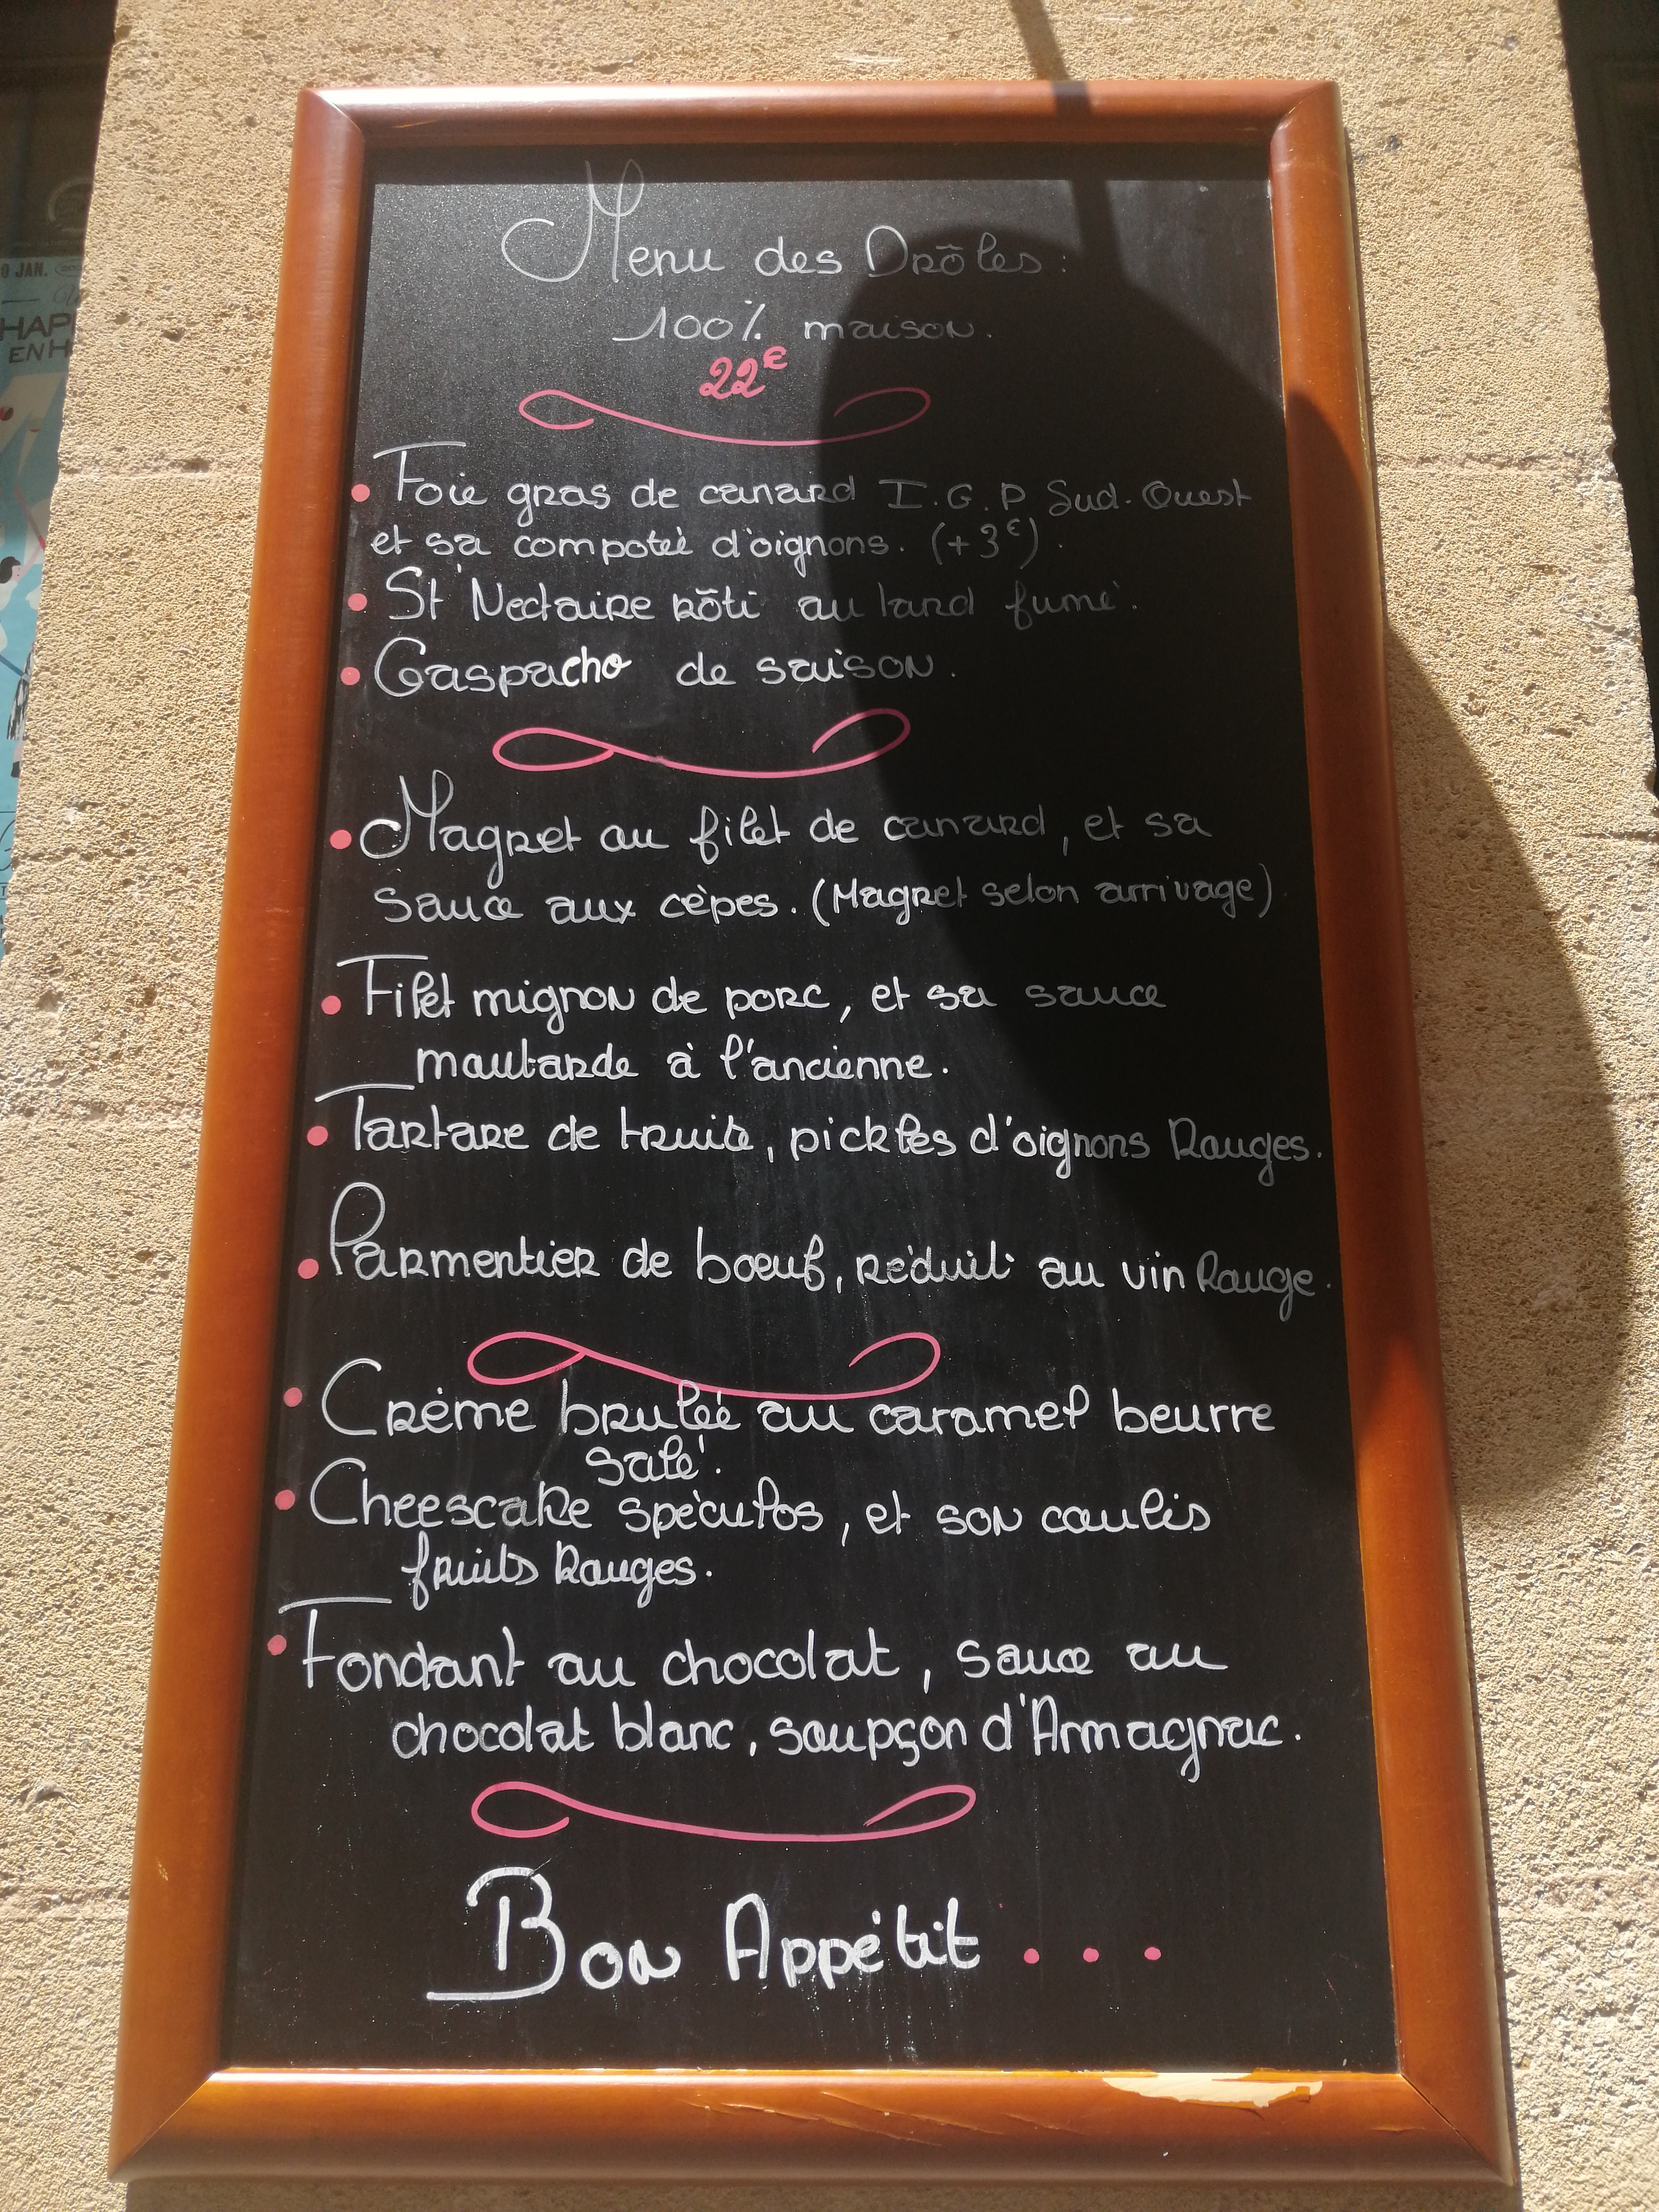 Menu des Drôles :
100% maison.
22€
• Foie gras de canard I.G.P Sud-Ouest
et sa compotée d'oignons. (+3€).
• St Nectaire rôti au lard fumé.
• Gaspacho de saison.
• Magret ou filet de canard, et sa
sauce aux cèpes. (Magret selon arrivage)
• Filet mignon de porc, et sa sauce
moutarde à l'ancienne.
• Tartare de truite, pickles d'oignons Rouges.
• Parmentier de bœuf, réduit au vin Rouge.
• Crème brulée au caramel beurre
salé.
• Cheescake spéculos, et son coulis
fruits Rouges.
• Fondant au chocolat, sauce au
chocolat blanc, soupçon d'Armagnac.
Bon Appétit ...
JAN.
HAP
EN H